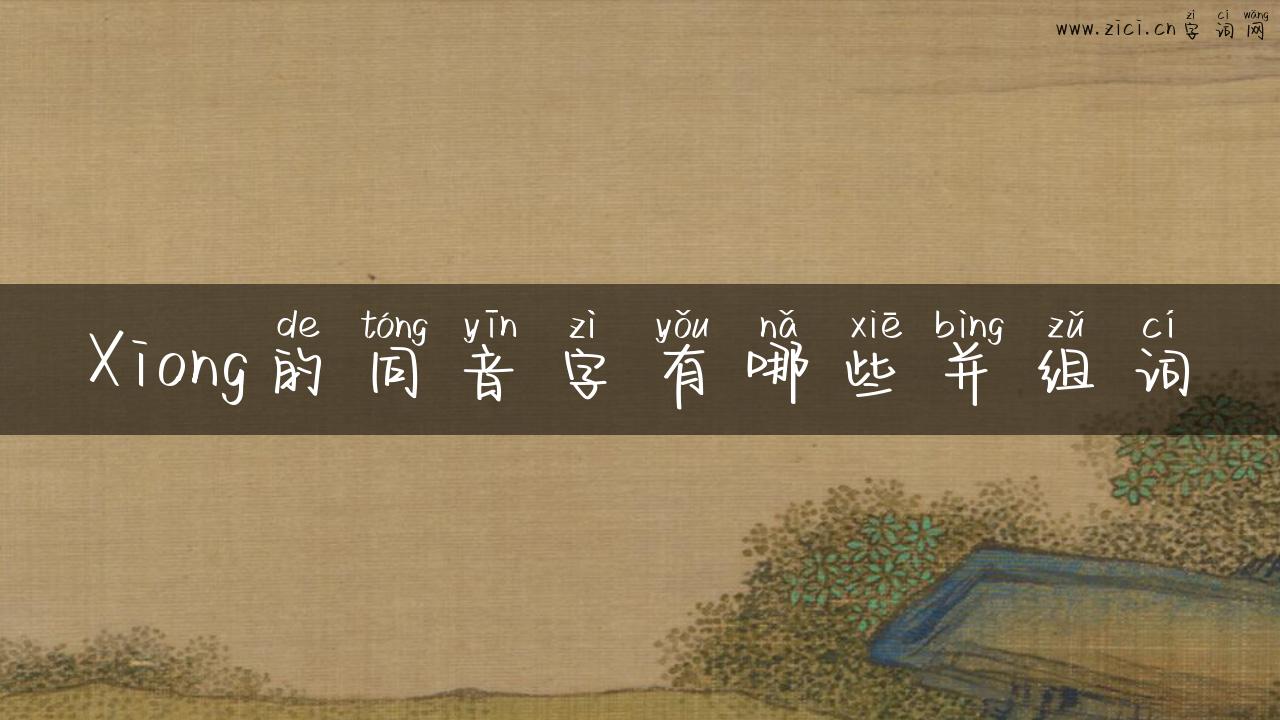 zì cí wǎng
www.zici.cn字词网
de tóng yīn zì yǒu nǎ xiē bìng zǔ cí
Xiong的同音字有哪些并组词